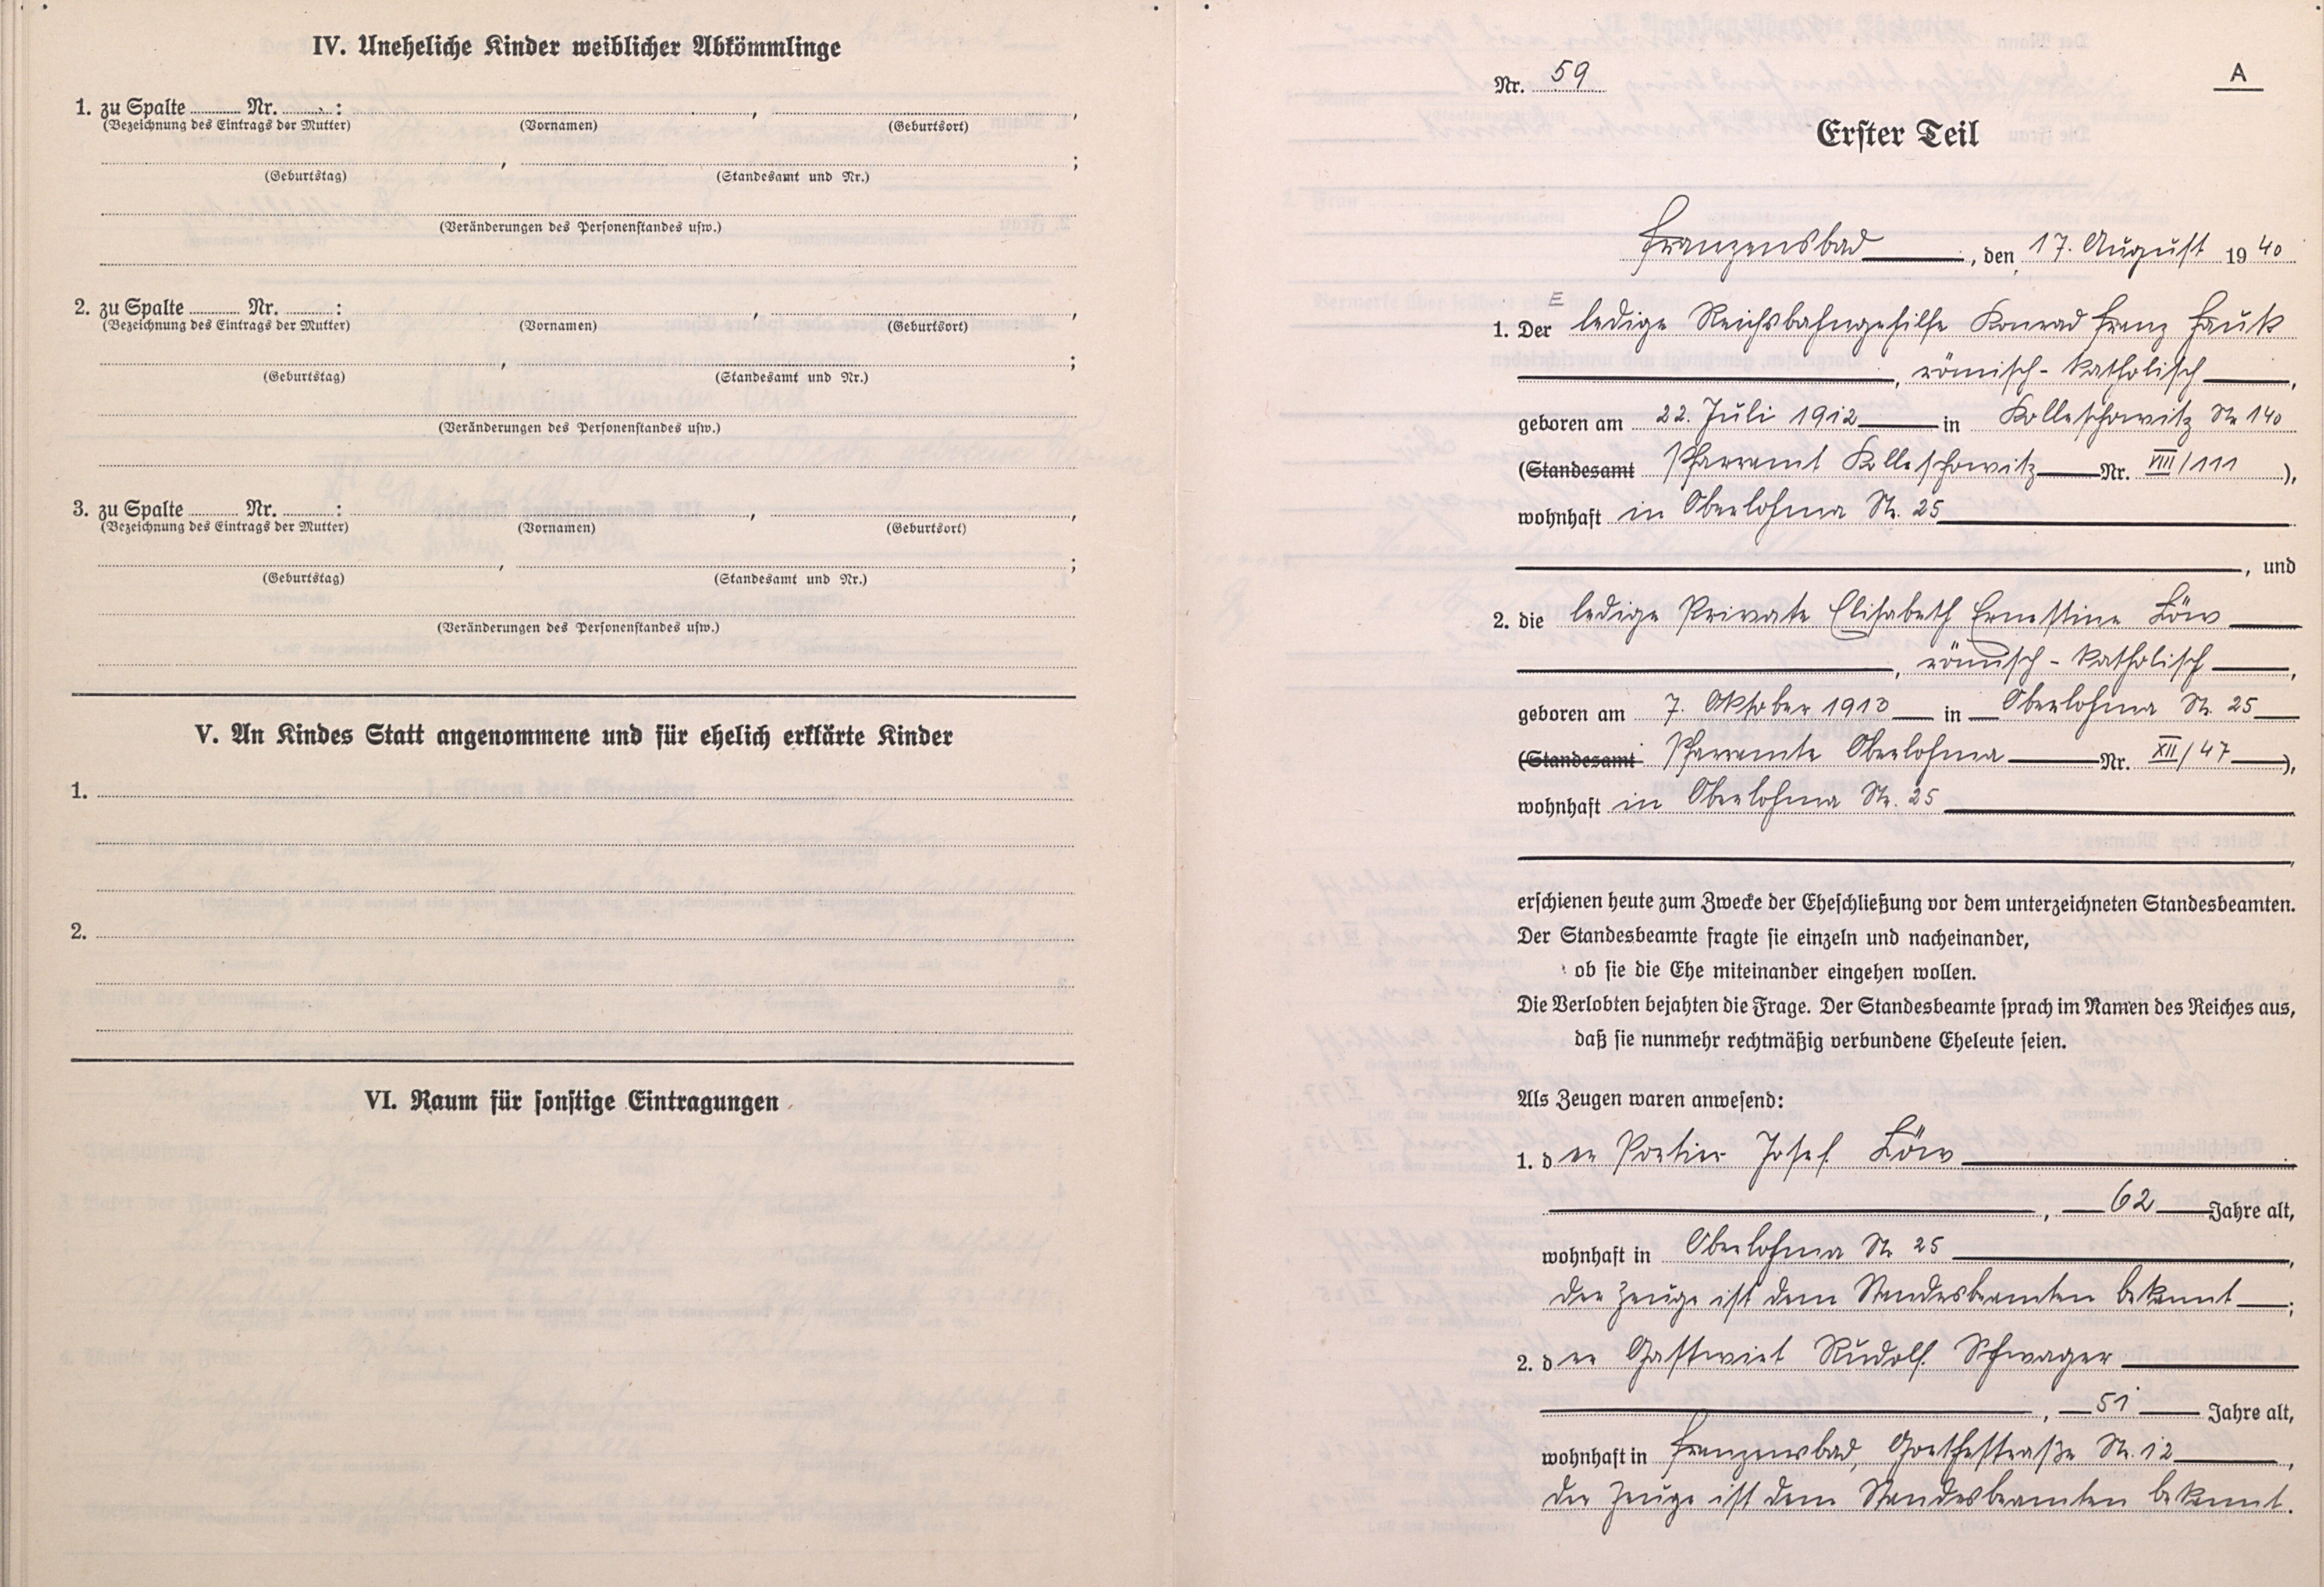 IV. Uneheliche Kinder weiblicher Abkömmlinge
1. zu Spalte Nr. : , ,
(Bezeichnung des Eintrags der Mutter) (Vornamen) (Geburtsort)
, ;
(Geburtstag) (Standesamt und Nr.)
(Veränderungen des Personenstandes usw.)
2. zu Spalte Nr. : , ,
(Bezeichnung des Eintrags der Mutter) (Vornamen) (Geburtsort)
, ;
(Geburtstag) (Standesamt und Nr.)
(Veränderungen des Personenstandes usw.)
3. zu Spalte Nr. : , ,
(Bezeichnung des Eintrags der Mutter) (Vornamen) (Geburtsort)
, ;
(Geburtstag) (Standesamt und Nr.)
(Veränderungen des Personenstandes usw.)
V. An Kindes Statt angenommene und für ehelich erklärte Kinder
1.
2.
VI. Raum für sonstige Eintragungen
A
Nr. 59
Erster Teil
Franzensbad, den 17. August 1940
E
1. Der ledige Reichsbahngehilfe Konrad Franz Hauk
, römisch-katholisch,
geboren am 22. Juli 1912 in Kolleschowitz Nr. 140
(Standesamt Pfarramt Kolleschowitz Nr. VIII/111),
wohnhaft in Oberlohma Nr. 25
, und
2. die ledige Private Elisabeth Ernestine Löw
, römisch-katholisch,
geboren am 7. Oktober 1913 in Oberlohma Nr. 25
(Standesamt Pfarramte Oberlohma Nr. XII/47),
wohnhaft in Oberlohma Nr. 25
,
erschienen heute zum Zwecke der Eheschließung vor dem unterzeichneten Standesbeamten.
Der Standesbeamte fragte sie einzeln und nacheinander,
ob sie die Ehe miteinander eingehen wollen.
Die Verlobten bejahten die Frage. Der Standesbeamte sprach im Namen des Reiches aus,
daß sie nunmehr rechtmäßig verbundene Eheleute seien.
Als Zeugen waren anwesend:
1. der Portier Josef Löw
, 62 Jahre alt,
wohnhaft in Oberlohma Nr. 25,
der Zeuge ist dem Standesbeamten bekannt;
2. der Gastwirt Rudolf Schwager
, 51 Jahre alt,
wohnhaft in Franzensbad, Goethestraße Nr. 12,
der Zeuge ist dem Standesbeamten bekannt.